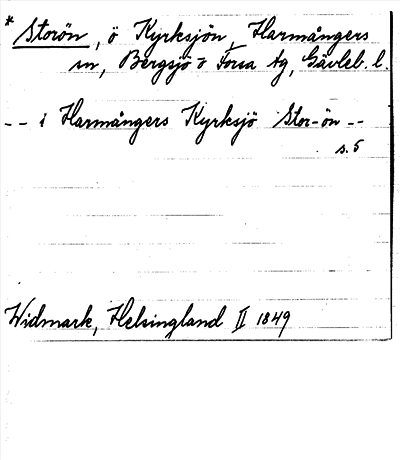 * Storön, ö Kyrksjön, Harmångers
sn, Bergsjö o Forsa tg, Gävleb. l.
-- i Harmångers Kyrksjö Stor-ön --
s. 5
Widmark, Helsingland II 1849